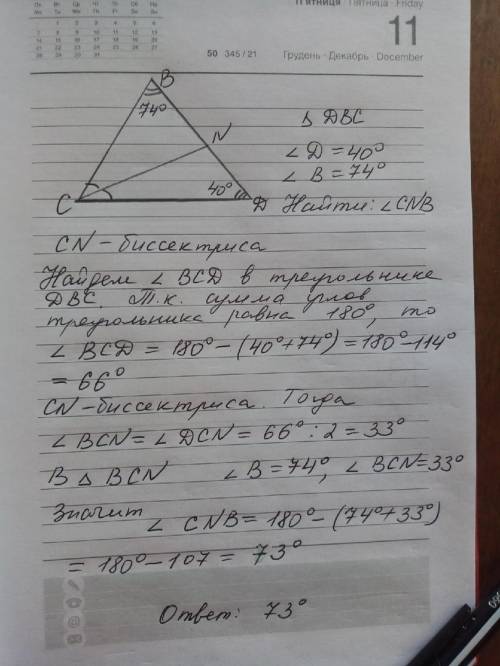 П'ятниця · Пятница · Friday
11
50 345 / 21
Грудень · Декабрь December
B
74°
N
C
40°
D
Δ DBC
∠D = 40°
∠B = 74°
Найти: ∠CNB
CN - биссектриса
Найдем ∠ BCD в треугольнике
DBC. Т.к. сумма углов
треугольника равна 180°, то
∠ BCD = 180° - (40°+74°) = 180° - 114°
= 66°
CN - биссектриса. Тогда
∠ BCN = ∠ DCN = 66° : 2 = 33°
В Δ BCN ∠B = 74°, ∠ BCN = 33°
Значит
∠ CNB = 180° - (74°+33°)
= 180° - 107 = 73°
Ответ: 73°